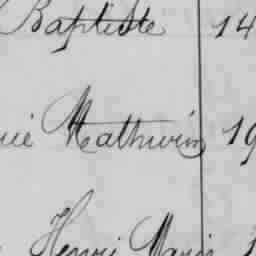 Baptiste 14
Mathurin 19
Henri Marie